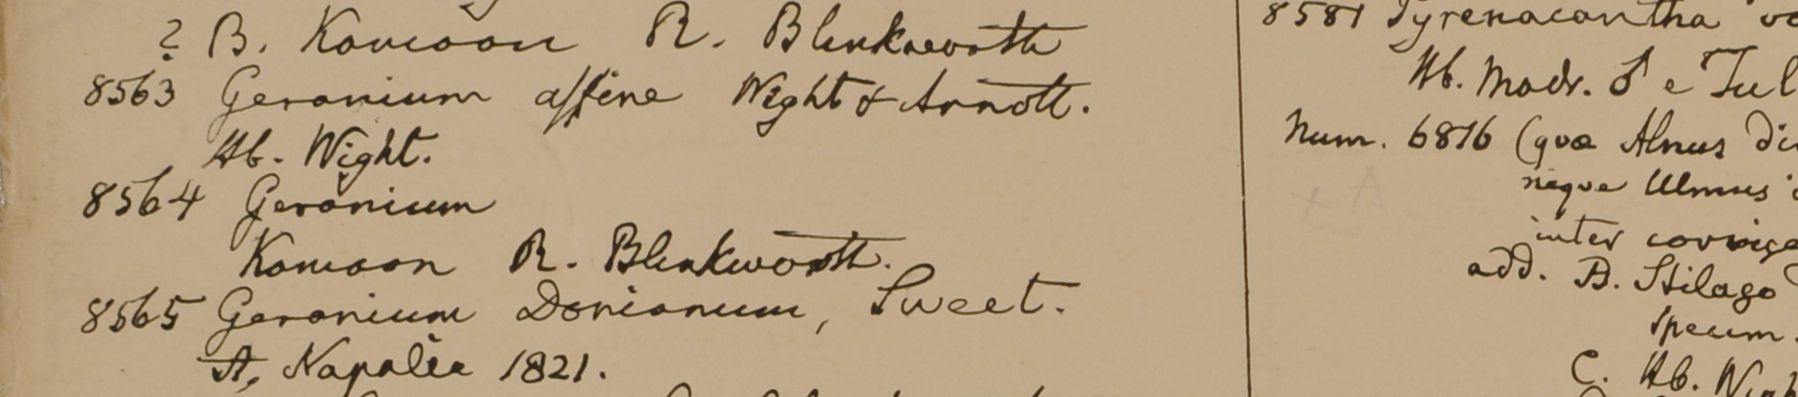 ? B. Kamoon R. Blinkworth
8563 Geranium affine Wight & Arnott.
Hb. Wight.
8564 Geranium
Kamoon R. Blinkworth.
8565 Geranium Donianum, Sweet.
A, Napalia 1821.
8581 Pyrenacantha vo
Hb. Madr. ♂ e Tul
Num. 6816 (quæ Alnus di
neque Ulmus
inter corrige
add. B. Stilago
specim.
C. Hb. Wigh